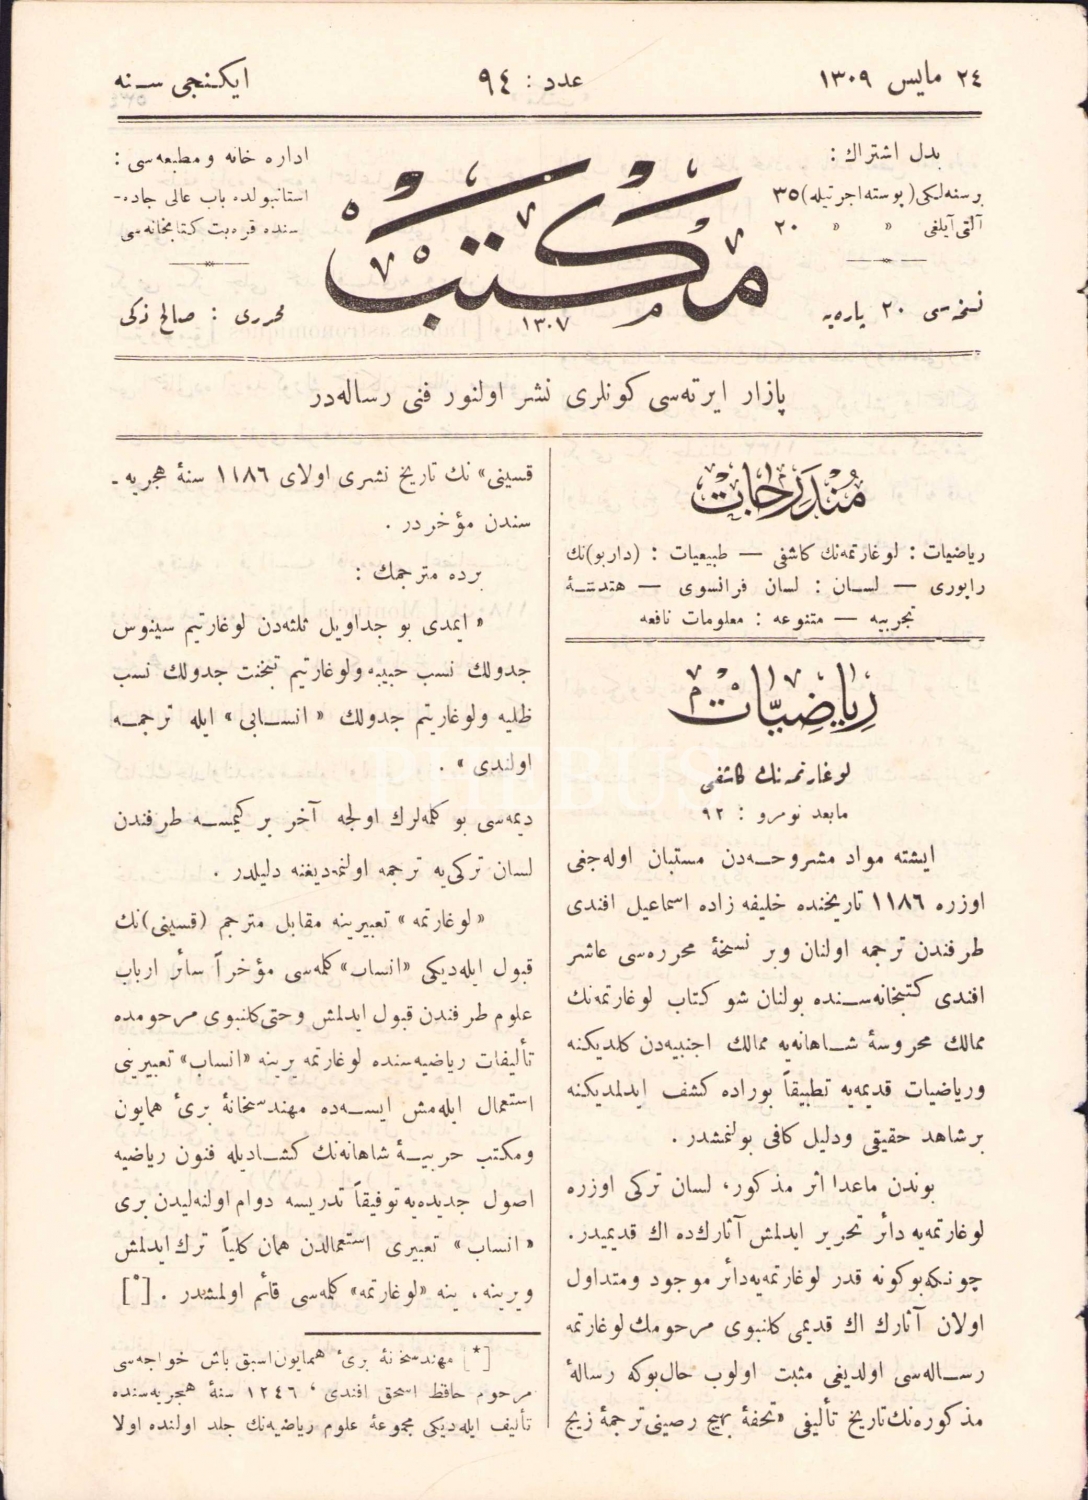 ٢٤ مايس ١٣٠٩
عدد : ٩٤
ايكنجى سنه
بدل اشتراك :
برسنه‌لكى (پوسته اجرتيله) ٣٥
آلتى آيلغى » » ٢٠
نسخه‌سى ٢٠ پاره‌يه
مكتب
١٣٠٧
اداره خانه ومطبعه‌سى :
استانبولده باب عالى جاده‌-
سنده قره‌بت كتابخانه‌سى
محررى : صالح زكى
پازار ايرته‌سى كونلرى نشر اولنور فنى رساله‌در
مُنْدَرَجات
رياضيات : لوغارتمه‌نك كاشفى — طبيعيات : (داربو)نك
رابورى — لسان : لسان فرانسوى — هندسهٔ
تجربيه — متنوعه : معلومات نافعه
رِياضِيّات
لوغارتمه‌نك كاشفى
مابعد نومرو : ٩٢
ايشته مواد مشروحه‌دن مستبان اوله‌جغى
اوزره ١١٨٦ تاريخنده خليفه زاده اسماعيل افندى
طرفندن ترجمه اولنان وبر نسخهٔ محرره‌سى عاشر
افندى كتبخانه‌سنده بولنان شو كتاب لوغارتمه‌نك
ممالك محروسهٔ شاهانه‌يه ممالك اجنبيه‌دن كلديكنه
ورياضيات قديمه‌يه تطبيقاً بوراده كشف ايدلمديكنه
برشاهد حقيقى ودليل كافى بولنمشدر .
بوندن ماعدا اثر مذكور، لسان تركى اوزره
لوغارتمه‌يه دائر تحرير ايدلمش آثارك‌ده اك قديميدر.
چونكه بوكونه قدر لوغارتمه‌يه‌دائر موجود ومتداول
اولان آثارك اك قديمى كلنبوى مرحومك لوغارتمه
رساله‌سى اولديغى مثبت اولوب حال‌بوكه رسالهٔ
مذكوره‌نك تاريخ تأليفى «تحفهٔ بهيج رصينى ترجمهٔ زيج
قسينى» نك تاريخ نشرى اولاى ١١٨٦ سنهٔ هجريه‌ -
سندن مؤخردر .
برده مترجمك :
« ايمدى بو جداويل ثلثه‌دن لوغارتيم سينوس
جدولك نسب حبيبه ولوغارتيم تبخنت جدولك نسب
ظليه ولوغارتيم جدولك « انسابى » ايله ترجمه
اولندى » .
ديمه‌سى بو كلمه‌لرك اولجه آخر بر كيمسه طرفندن
لسان تركى‌يه ترجمه اولنمه‌ديغنه دليلدر .
« لوغارتمه » تعبيرينه مقابل مترجم (قسينى)نك
قبول ايله‌ديكى «انساب» كلمه‌سى مؤخراً سائر ارباب
علوم طرفندن قبول ايدلمش وحتى كلنبوى مرحومده
تأليفات رياضيه‌سنده لوغارتمه يرينه «انساب» تعبيرينى
استعمال ايله‌مش ايسه‌ده مهندسخانهٔ برئ همايون
ومكتب حربيهٔ شاهانه‌نك كشاديله فنون رياضيه
اصول جديده‌يه توفيقاً تدريسه دوام اولنه‌ليدن برى
« انساب » تعبيرى استعمالدن همان كلياً ترك ايدلمش
ويرينه ، ينه «لوغارتمه» كلمه‌سى قائم اولمشدر . [*]
[*] مهندسخانهٔ برئ همايون اسبق باش خواجه‌سى
مرحوم حافظ اسحق افندى ، ١٢٤٦ سنهٔ هجريه‌سنده
تأليف ايله‌ديكى مجموعهٔ علوم رياضيه‌نك جلد اولنده اولا
PHEBUS